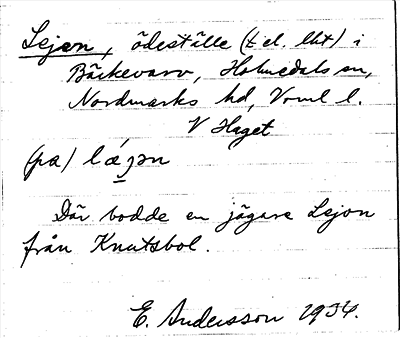 Lejon, ödeställe (t el. lht) i
Bäckevarv, Holmedals sn,
Nordmarks hd, Vrml l.
V Haget
(pa) lǽjən
Där bodde en jägare Lejon
från Knutsbol.
E. Andersson 1934.